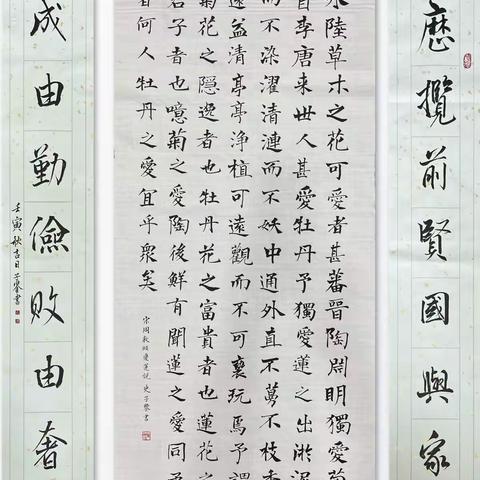 歷攬前賢國與家
水陸草木之花可愛者甚蕃晉陶淵明獨愛菊
自李唐来世人甚愛牡丹予獨愛蓮之出淤泥
而不染濯清漣而不妖中通外直不蔓不枝香
遠益清亭亭净植可遠觀而不可褻玩焉予謂
菊花之隱逸者也牡丹花之富貴者也蓮花之
君子者也噫菊之愛陶後鮮有聞蓮之愛同予
者何人牡丹之愛宜乎眾矣
宋周敦頤愛蓮説 史子黎書
成由勤儉敗由奢
壬寅秋吉日子黎書